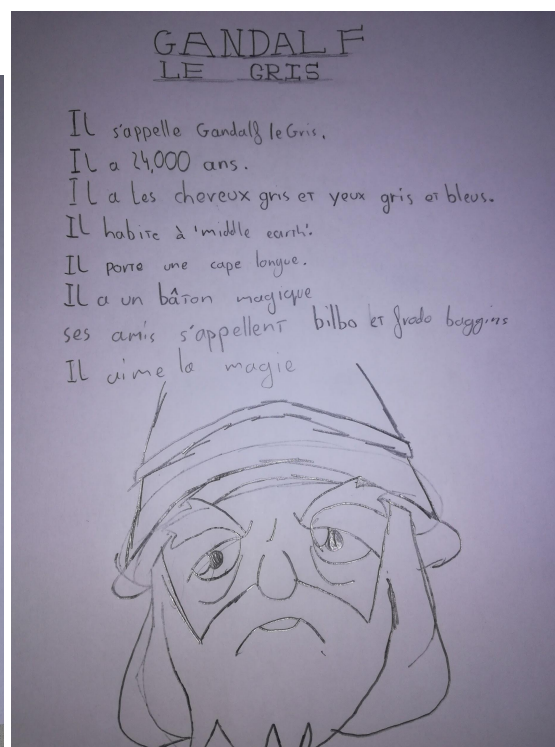 GANDALF
LE GRIS
Il s'appelle Gandalf le Gris.
Il a 24,000 ans.
Il a les cheveux gris et yeux gris et bleus.
Il habite à 'middle earth'.
Il porte une cape longue.
Il a un bâton magique
ses amis s'appellent bilbo et frodo baggins
Il aime la magie